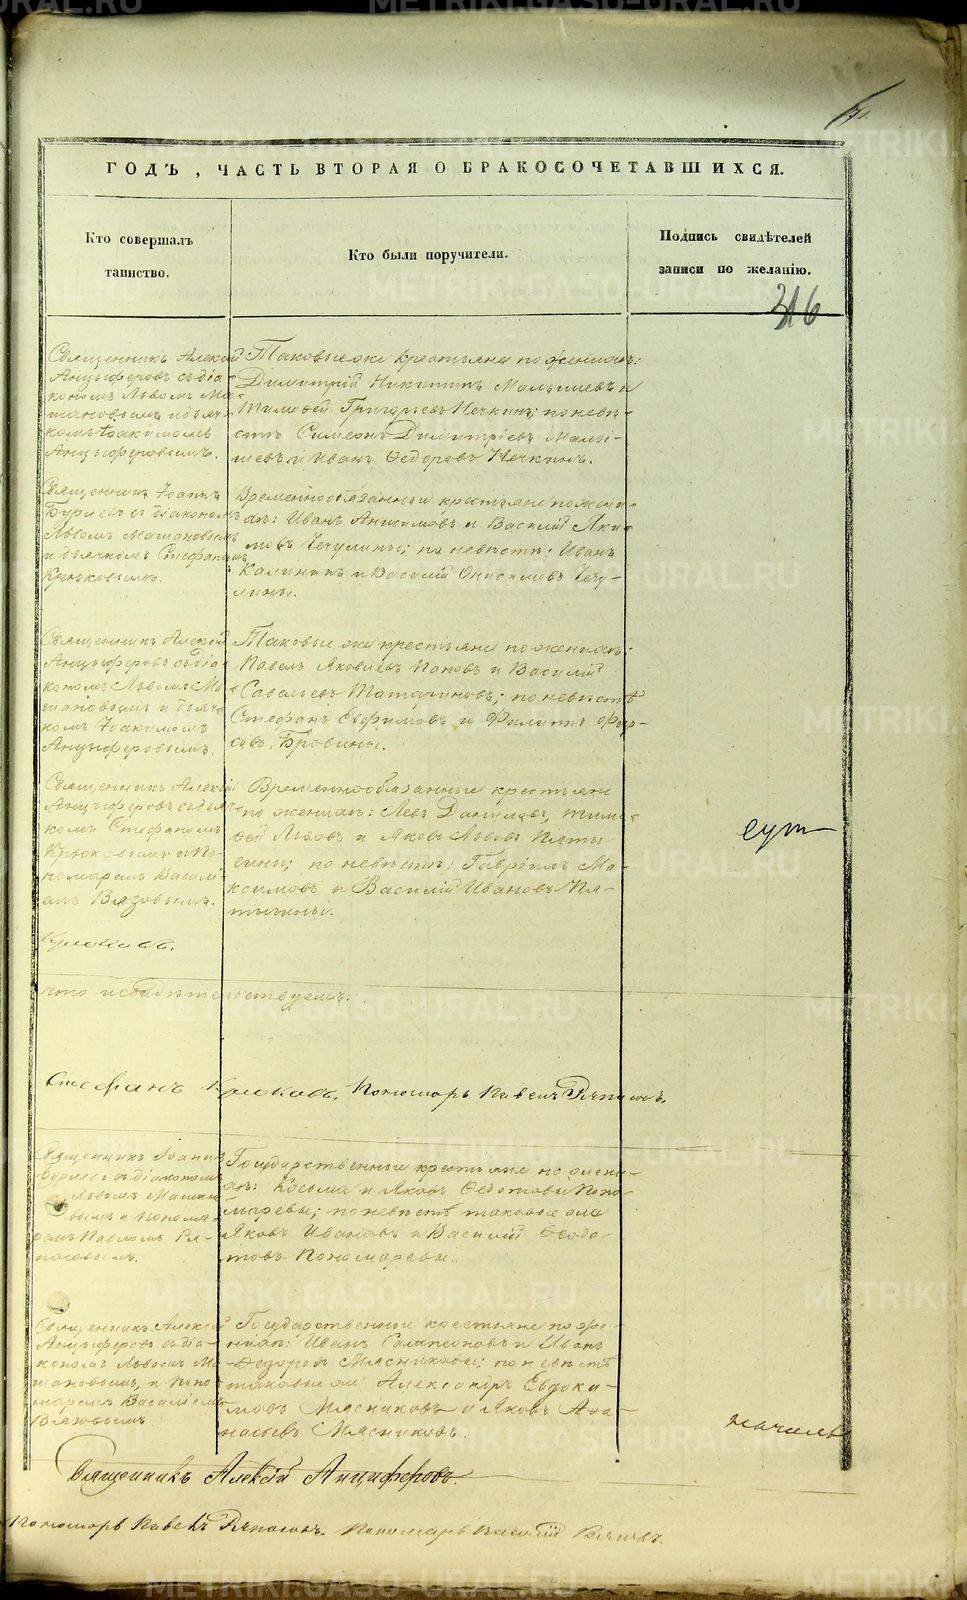 ГОДЪ, ЧАСТЬ ВТОРАЯ О БРАКОСОЧЕТАВШИХСЯ.
Кто совершалъ
таинство.
Кто были поручители.
Подпись свидѣтелей
записи по желанію.
316
Священникъ Алексѣй
Анцыферовъ съ діа-
кономъ Львомъ Ма-
шановымъ и дьяч-
комъ Іоакимомъ
Анцыферовымъ.
Таковые же крестьяне по женихѣ:
Димитрій Никитинъ Малышевъ и
Тимофей Григорьевъ Нечкинъ; по невѣ-
стѣ Симеонъ Димитріевъ Малы-
шевъ и Иванъ Ѳедоровъ Нечкинъ.
Священникъ Іоаннъ
Бурцевъ съ діакономъ
Львомъ Машановымъ
и дьячкомъ Стефаномъ
Крюковымъ.
Временнообязанные крестьяне по жени-
хѣ: Иванъ Анисимовъ и Василій Яки-
мовъ Чечулины; по невѣстѣ: Иванъ
Калининъ и Василій Онисимовъ Чечу-
лины.
Священникъ Алексѣй
Анцыферовъ съ діа-
кономъ Львомъ Ма-
шановымъ и дьяч-
комъ Іоакимомъ
Анцыферовымъ.
Таковые же крестьяне по женихѣ:
Павелъ Яковлевъ Поповъ и Василій
Савельевъ; по невѣстѣ
Стефанъ Евфимовъ и Филиппъ Фир-
совъ Бровины.
Священникъ Алексѣй
Анцыферовъ съ дьяч-
комъ Стефаномъ
Крюковымъ и по-
номаремъ Василі-
емъ Вязовымъ.
Временнообязанные крестьяне
по женихѣ: Левъ Даниловъ, Тимо-
фей Львовъ и Яковъ Львовъ Пяты-
гины; по невѣстѣ: Гавріилъ Ма-
ксимовъ и Василій Ивановъ Пя-
тыгины.
Крюковъ.
что и свидѣтельствуемъ:
Стефанъ Крюковъ. Пономарь Павелъ Ряпасовъ.
Священникъ Іоаннъ
Бурцевъ съ діакономъ
Львомъ Машано-
вымъ и понома-
ремъ Павломъ Ря-
пасовымъ.
Государственные крестьяне по жени-
хѣ: Косьма и Яковъ Ѳедотовы Поно-
маревы; по невѣстѣ таковые же
Яковъ Ивановъ и Василій Ѳедо-
товъ Пономаревы.
Священникъ Алексѣй
Анцыферовъ съ діа-
кономъ Львомъ Ма-
шановымъ, и поно-
маремъ Василіемъ
Вязовымъ
Государственные крестьяне по же-
нихѣ: Иванъ Сампсоновъ и Иванъ
Ѳедоровъ Мясниковы; по невѣстѣ
таковые же Александръ Евдоки-
мовъ Мясниковъ и Яковъ Аѳа-
насьевъ Мясниковъ.
Священникъ Алексій Анциферовъ.
Пономарь Павелъ Ряпасовъ. Пономарь Василій Вязовъ.
METRIKI.GASO-URAL.RU